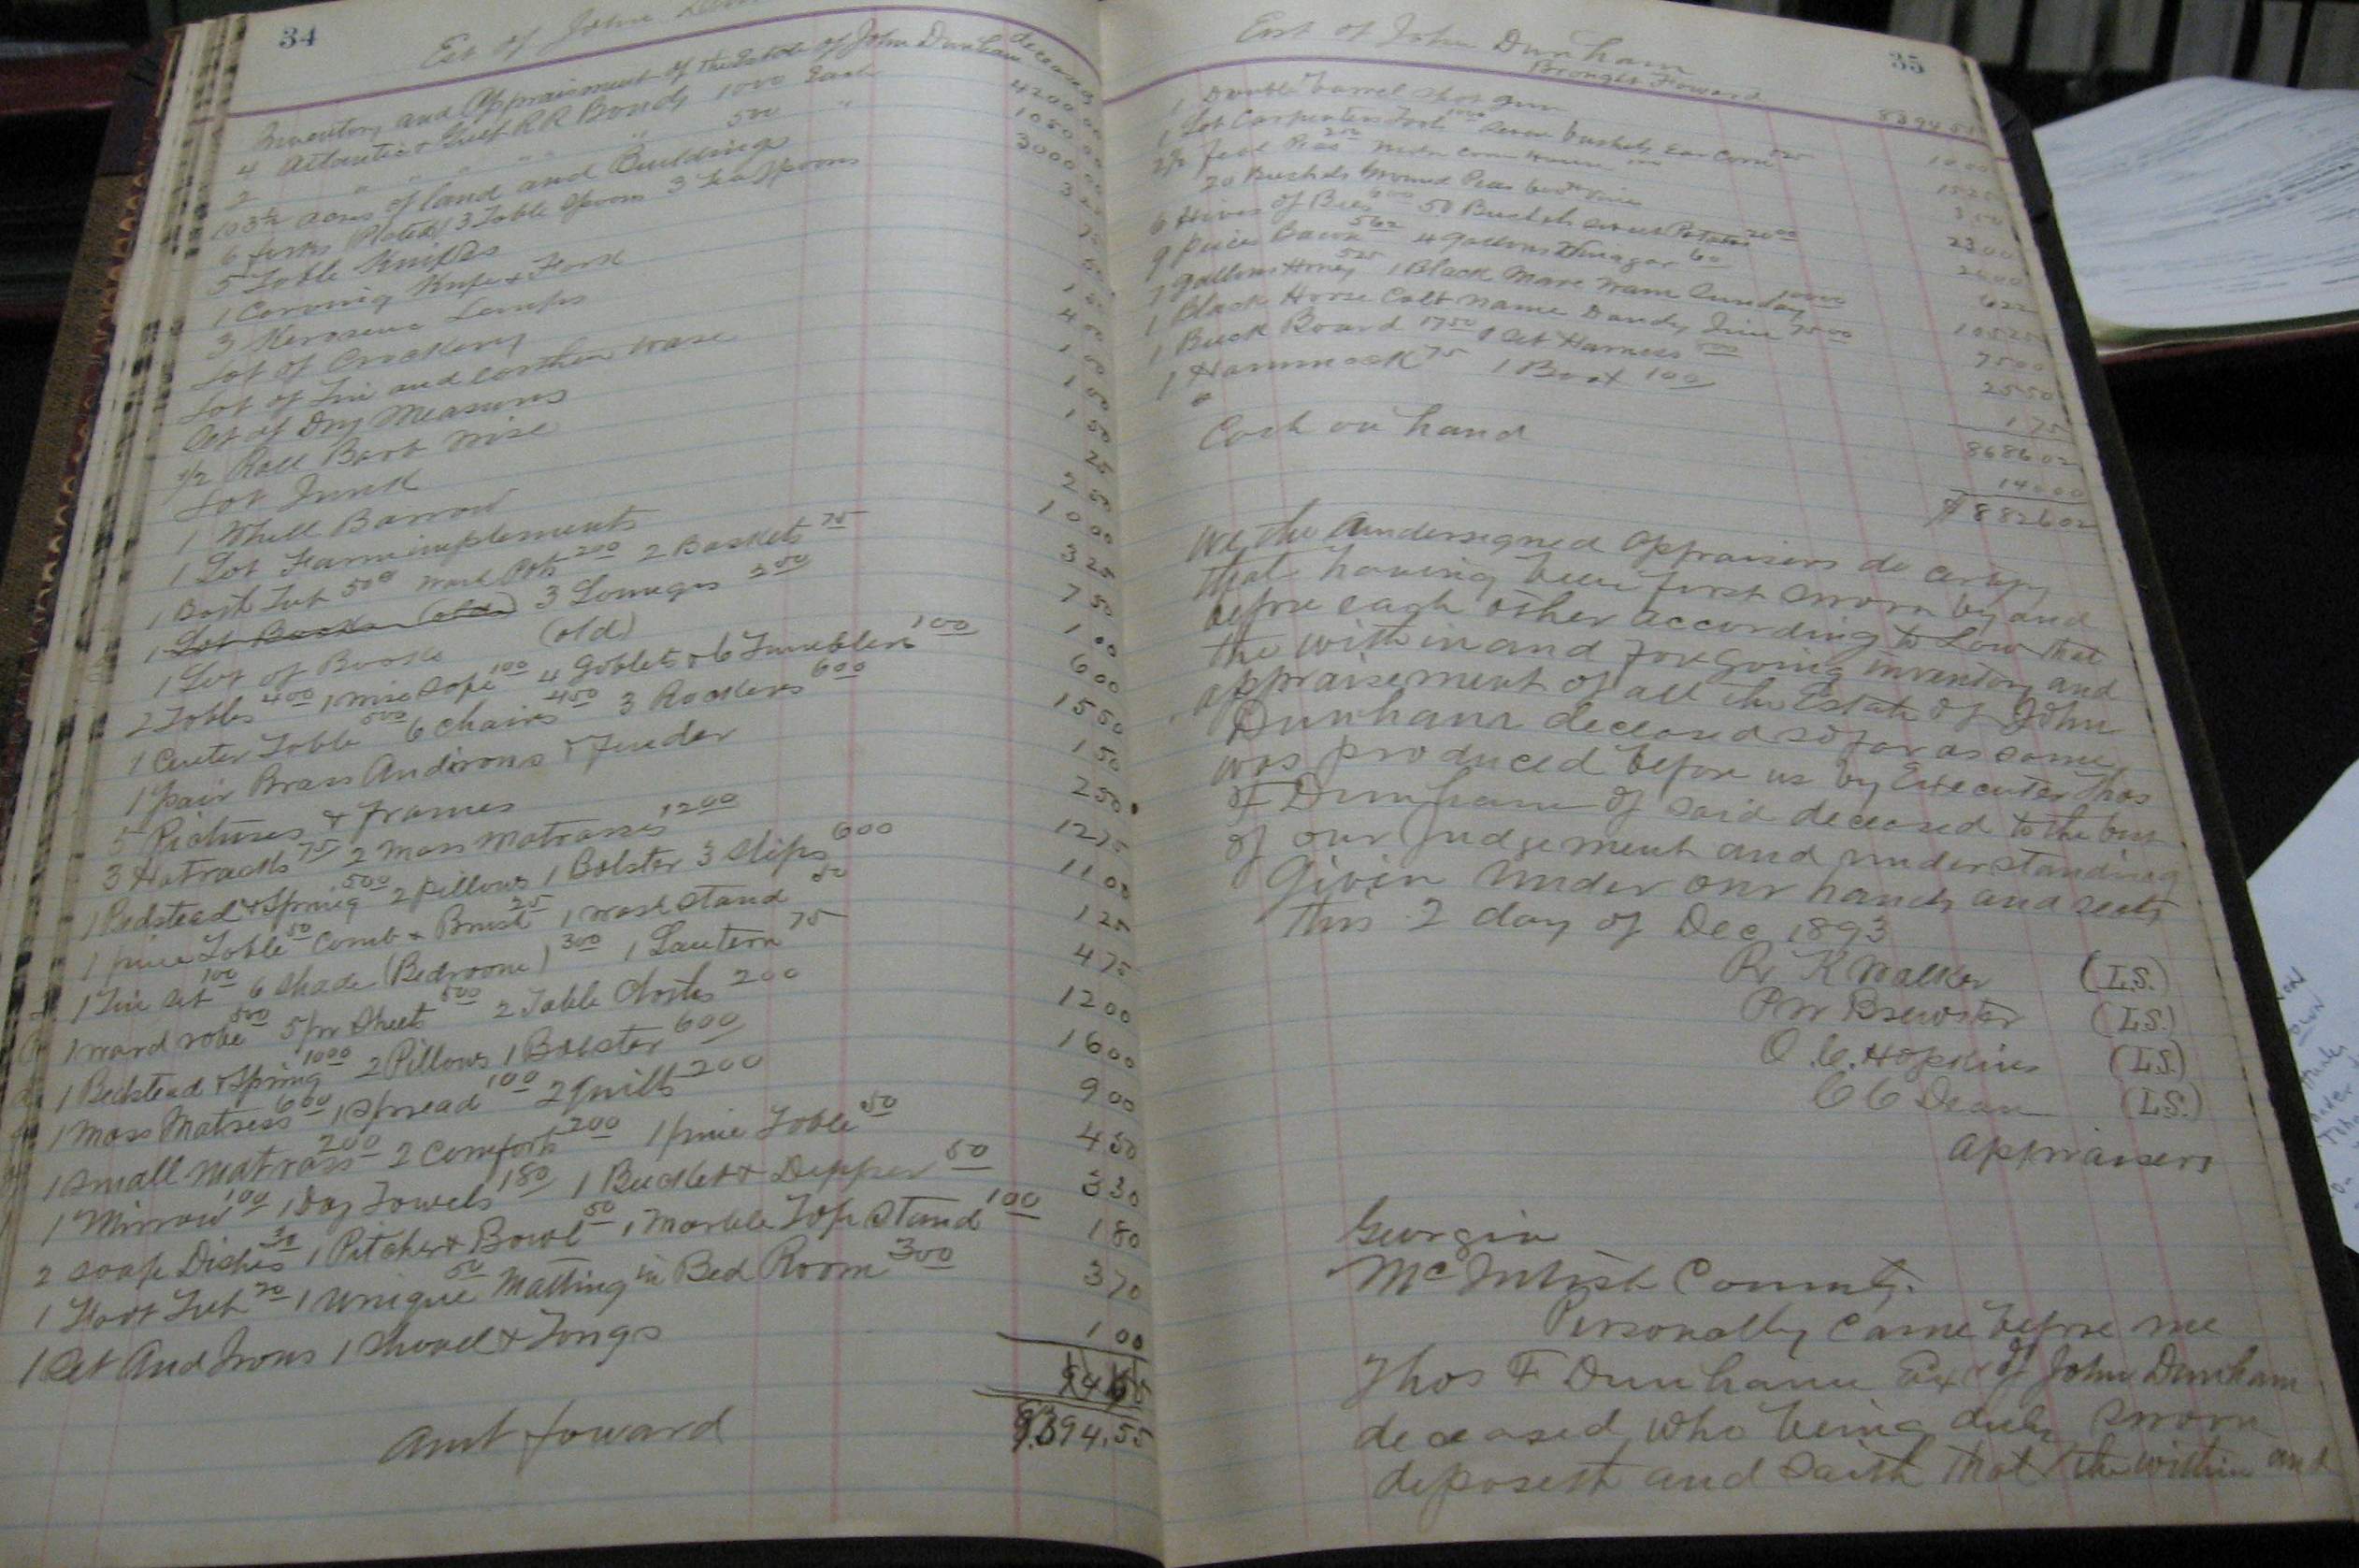 34
Est of John
Inventory and Appraisment of the Estate of John Dunham deceased
4 Atlantic & Gulf RR Bonds 1000 Each 4200 00
2 " " " " " 500 " 1050 00
103½ acres of land and Buildings 3000 00
6 forks Plated 3 Table Spoons 3 Tea Spoons 3
5 Table Knifes
1 Carving Knife & Fork
3 Kerosene Lamps
Lot of Crockery 4 00
Lot of Tin and earthen ware 1 00
Set of Dry Measures 1 00
1/2 Roll Barb Wire 1 50
Lot Junk 25
1 Whell Barrow 2 50
1 Lot Farm implements 10 00
1 Bath Tub 50 Wash Pots 200 2 Baskets 75 3 25
1 Lot Books (old) 3 Lounges 7 50
1 Lot of Books (old) 1 00
2 Tables 400 1 Wire Safe 100 4 Goblets & 6 Tumblers 100 6 00
1 Center Table 500 6 Chairs 450 3 Rockers 600 15 50
1 pair Brass Andirons & Fender 1 50
5 Pictures & Frames 2 50
3 Hatracks 75 2 Moss Matrasses 1200 12 75
1 Bedstead & Spring 500 2 pillows 1 Bolster 3 Slips 600 11 00
1 pine Table 50 Comb & Brush 25 1 Wash Stand 50 1 25
1 Tin Set 100 6 Shade (Bedroom) 300 1 Lantern 75 4 75
1 Ward robe 500 5 pr Sheets 500 2 Table Cloths 200 12 00
1 Bedstead & Spring 1000 2 Pillows 1 Bolster 600 16 00
1 Moss Matress 600 1 Spread 100 2 Quilts 200 9 00
1 Small Matrass 200 2 Comforts 200 1 pine Table 50 4 50
1 Mirrow 100 1 Doz Towels 180 1 Bucket & Dipper 50 3 30
2 Soap Dishes 30 1 Pitcher & Bowl 50 1 Marble Top Stand 100 1 80
1 Foot Tub 20 1 Unique 50 Matting in Bed Room 300 3 70
1 Set And Irons 1 Shovel & Tongs 1 00
Amt foward 8394.55
35
Est of John Dunham
Brought Foward 8394 55
1 Double barrel Shot gun 10 00
1 Lot Carpenters Tools 1000 Seven bushels Ear Corn 525 15 25
feed Peas 200 Corn House 100 3 00
20 Bushels Ground Peas Vine 23 00
6 Hives of Bees 600 50 Bushels Sweet Potatoes 2000 26 00
9 peices Bacon 562 4 gallons Vinegar 60 6 22
7 gallons Honey 525 1 Black Mare Name Sunday 10000 105 25
1 Black Horse Colt name Dandy Jim 7500 75 00
1 Buck Board 1750 1 Set Harness 800 25 50
1 Hammock 75 1 Boat 100 1 75
8686 02
Cash on hand 140 00
$8826 02
We the undersigned appraisers do certify
that having been first sworn by and
before each other according to Law that
the with in and forgoing inventory and
appraisement of all the Estate of John
Dunham deceased so far as same
was produced before us by Executer Thos
F Dunham of said deceased to the best
of our Judgement and understanding
Given under our hands and seals
this 2 day of Dec 1893
R K Walker (L.S.)
P W Brewster (L.S.)
O. C. Hopkins (L.S.)
C C Dean (L.S.)
Appraisers
Georgia
McIntosh County.
Personally came before me
Thos F Dunham Exr of John Dunham
deceased, who being duly sworn
deposeth and saith that the within and